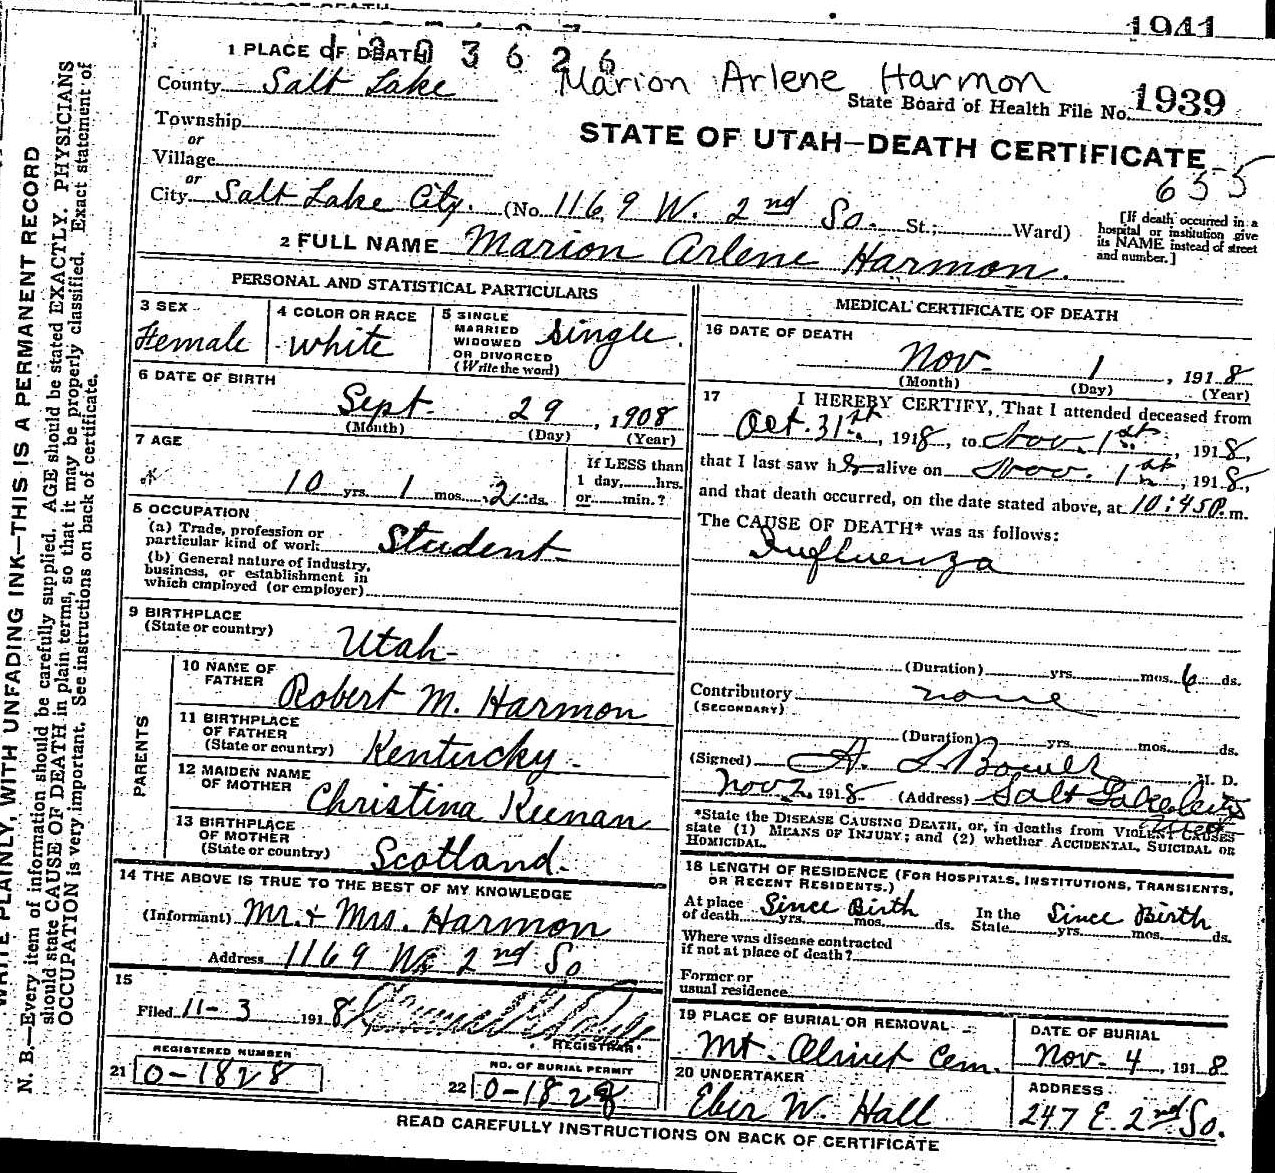 1941
1 PLACE OF DEATH
1303626
County Salt Lake
Marion Arlene Harmon
State Board of Health File No. 1939
Township
or
Village
STATE OF UTAH—DEATH CERTIFICATE
635
or
City Salt Lake City. (No. 1169 W. 2nd So. St.; Ward)
[If death occurred in a hospital or institution give its NAME instead of street and number.]
2 FULL NAME Marion Arlene Harmon.
PERSONAL AND STATISTICAL PARTICULARS
3 SEX Female
4 COLOR OR RACE White
5 SINGLE MARRIED WIDOWED OR DIVORCED (Write the word) Single.
6 DATE OF BIRTH
Sept. 29, 1908
(Month) (Day) (Year)
7 AGE
10 yrs. 1 mos. 2 ds.
If LESS than 1 day, hrs. or min.?
8 OCCUPATION
(a) Trade, profession or particular kind of work Student
(b) General nature of industry, business, or establishment in which employed (or employer)
9 BIRTHPLACE
(State or country) Utah
PARENTS
10 NAME OF FATHER Robert M. Harmon
11 BIRTHPLACE OF FATHER (State or country) Kentucky.
12 MAIDEN NAME OF MOTHER Christina Keenan
13 BIRTHPLACE OF MOTHER (State or country) Scotland.
14 THE ABOVE IS TRUE TO THE BEST OF MY KNOWLEDGE
(Informant) Mr. & Mrs. Harmon
Address 1169 W. 2nd So
15
Filed 11-3 1918
REGISTRAR.
REGISTERED NUMBER
21 0-1828
NO. OF BURIAL PERMIT
22 0-1828
MEDICAL CERTIFICATE OF DEATH
16 DATE OF DEATH
Nov. 1, 1918
(Month) (Day) (Year)
17 I HEREBY CERTIFY, That I attended deceased from
Oct. 31st, 1918, to Nov. 1st, 1918,
that I last saw her alive on Nov. 1st, 1918,
and that death occurred, on the date stated above, at 10:45 P.m.
The CAUSE OF DEATH* was as follows:
Influenza
(Duration) yrs. mos. 6 ds.
Contributory none
(SECONDARY)
(Duration) yrs. mos. ds.
(Signed) A. L. Bower M. D.
Nov 2, 1918 (Address) Salt Lake City
*State the DISEASE CAUSING DEATH, or, in deaths from VIOLENT CAUSES state (1) MEANS OF INJURY; and (2) whether ACCIDENTAL, SUICIDAL OR HOMICIDAL.
18 LENGTH OF RESIDENCE (FOR HOSPITALS, INSTITUTIONS, TRANSIENTS, OR RECENT RESIDENTS.)
At place of death Since Birth yrs. mos. ds. In the State Since Birth yrs. mos. ds.
Where was disease contracted if not at place of death?
Former or usual residence
19 PLACE OF BURIAL OR REMOVAL
Mt. Olivet Cem.
DATE OF BURIAL
Nov. 4, 1918
20 UNDERTAKER
Eber W. Hall
ADDRESS
247 E. 2nd So.
READ CAREFULLY INSTRUCTIONS ON BACK OF CERTIFICATE
WRITE PLAINLY, WITH UNFADING INK—THIS IS A PERMANENT RECORD
N. B.—Every item of information should be carefully supplied. AGE should be stated EXACTLY. PHYSICIANS
should state CAUSE OF DEATH in plain terms, so that it may be properly classified. Exact statement of
OCCUPATION is very important. See instructions on back of certificate.